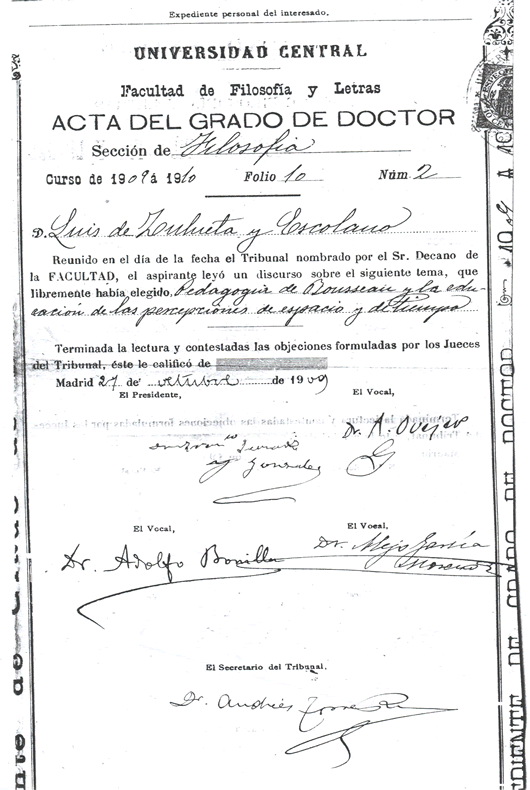 Expediente personal del interesado.
UNIVERSIDAD CENTRAL
Facultad de Filosofía y Letras
ACTA DEL GRADO DE DOCTOR
Sección de Filosofía
Curso de 1909 á 1910 Folio 10 Núm. 2
D. Luis de Zulueta y Escolano
Reunido en el día de la fecha el Tribunal nombrado por el Sr. Decano de
la FACULTAD, el aspirante leyó un discurso sobre el siguiente tema, que
libremente había elegido, Pedagogía de Rousseau y la edu-
cación de las percepciones de espacio y de tiempo
Terminada la lectura y contestadas las objeciones formuladas por los Jueces
del Tribunal, éste le calificó de
Madrid 27 de octubre de 1909
El Presidente, El Vocal,
Dr. A. Ovejero
y González
El Vocal, El Vocal,
Dr. Adolfo Bonilla
Dr. Alejo García
Moreno
El Secretario del Tribunal,
Dr. Andrés
EDIENTE DE GRADO DE DOCTOR